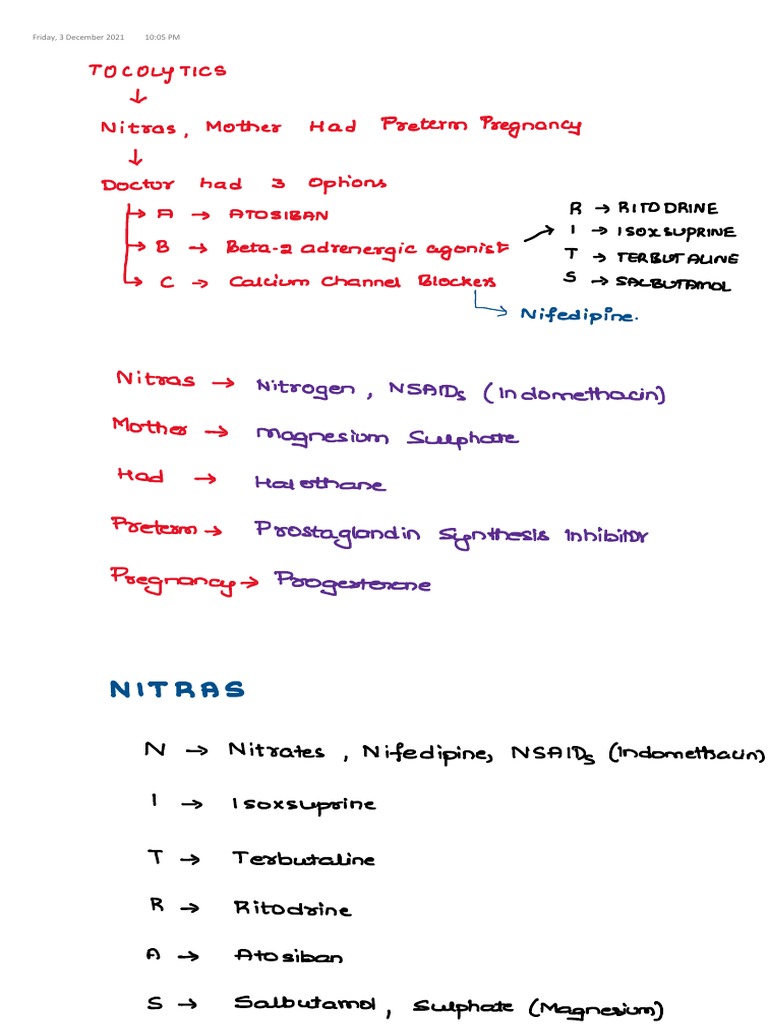 Friday, 3 December 2021 10:05 PM
TOCOLYTICS
↓
Nitras, Mother Had Preterm Pregnancy
↓
Doctor had 3 Options
→ A → ATOSIBAN
→ B → Beta-2 adrenergic agonist →
→ C → Calcium Channel Blockers
R → RITODRINE
I → ISOXSUPRINE
T → TERBUTALINE
S → SALBUTAMOL
→ Nifedipine.
Nitras → Nitrogen, NSAIDs (Indomethacin)
Mother → Magnesium Sulphate
Had → Halothane
Preterm → Prostaglandin Synthesis Inhibitor
Pregnancy → Progesterone
NITRAS
N → Nitrates, Nifedipine, NSAIDs (Indomethacin)
I → Isoxsuprine
T → Terbutaline
R → Ritodrine
A → Atosiban
S → Salbutamol, Sulphate (Magnesium)